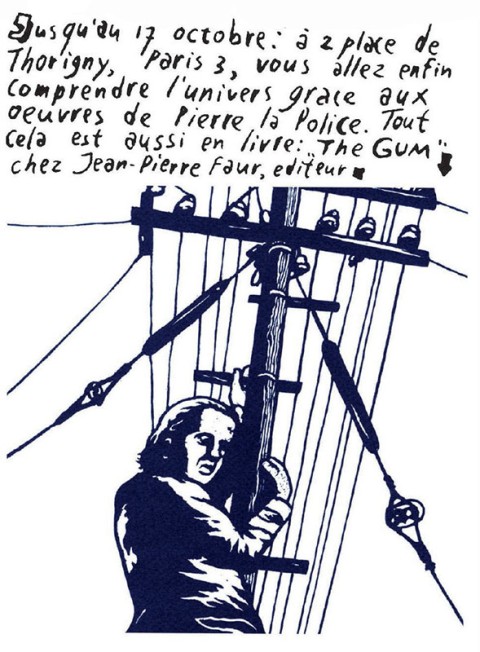 Jusqu'au 17 octobre: à 2 place de
Thorigny, Paris 3, vous allez enfin
comprendre l'univers grace aux
oeuvres de Pierre la Police. Tout
cela est aussi en livre: "THE GUM"
chez Jean-Pierre Faur, editeur.